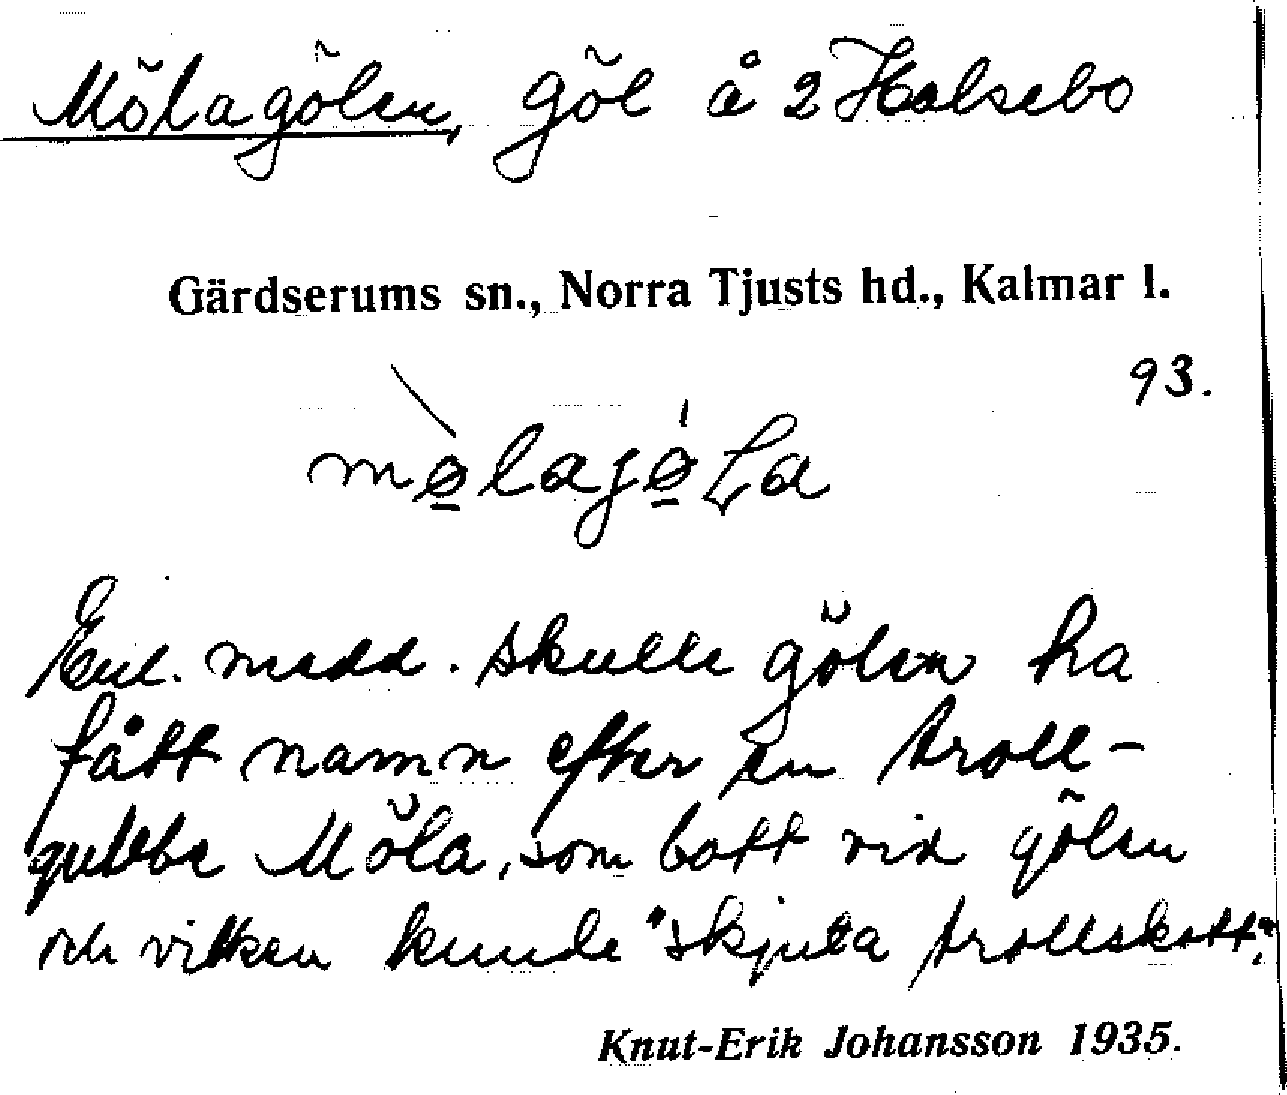 Mölagölen, göl å 2 Halsebo
Gärdserums sn., Norra Tjusts hd., Kalmar l.
93.
mø̲̀lagǿ̲La
Enl. medd. skulle gölen ha
fått namn efter en troll-
gubbe Möla, som bott vid gölen
och vilken kunde "skjuta trollskott".
Knut-Erik Johansson 1935.